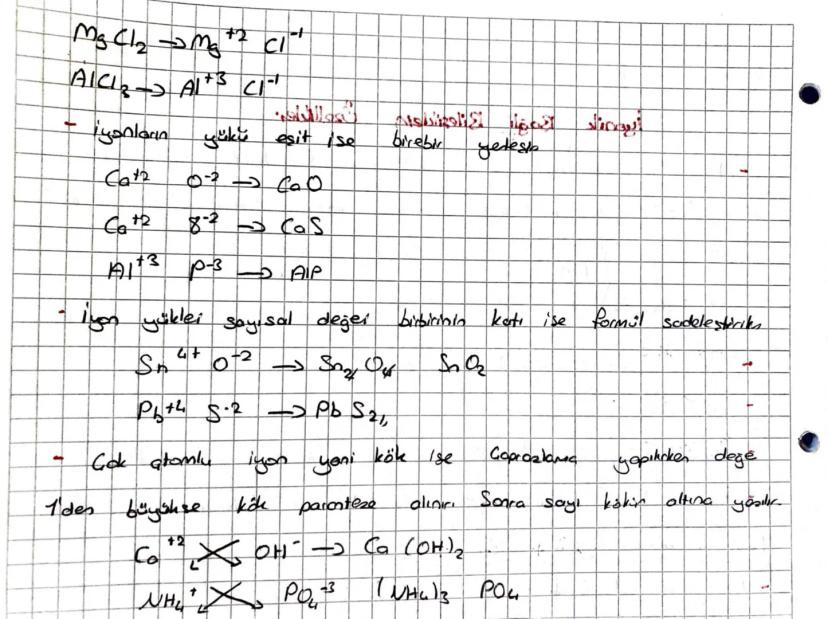 MgCl₂ → Mg⁺² Cl⁻¹
AlCl₃ → Al⁺³ Cl⁻¹
İyonik Bağlı Bileşiklerin Özellikleri
- iyonların yükü eşit ise birebir yerleşir
Ca⁺² O⁻² → CaO
Ca⁺² S⁻² → CaS
Al⁺³ P⁻³ → AlP
- İyon yükleri sayısal değeri birbirinin katı ise formül sadeleştirilir
Sn⁴⁺ O⁻² → Sn₂O₄ SnO₂
Pb⁺⁴ S⁻² → PbS₂
- Çok atomlu iyon yani kök ise Çaprazlama yapılırken değer
1'den büyükse kök paranteze alınır. Sonra sayı kökün altına yazılır.
Ca⁺² OH⁻ → Ca(OH)₂
NH₄⁺ PO₄⁻³ (NH₄)₃ PO₄